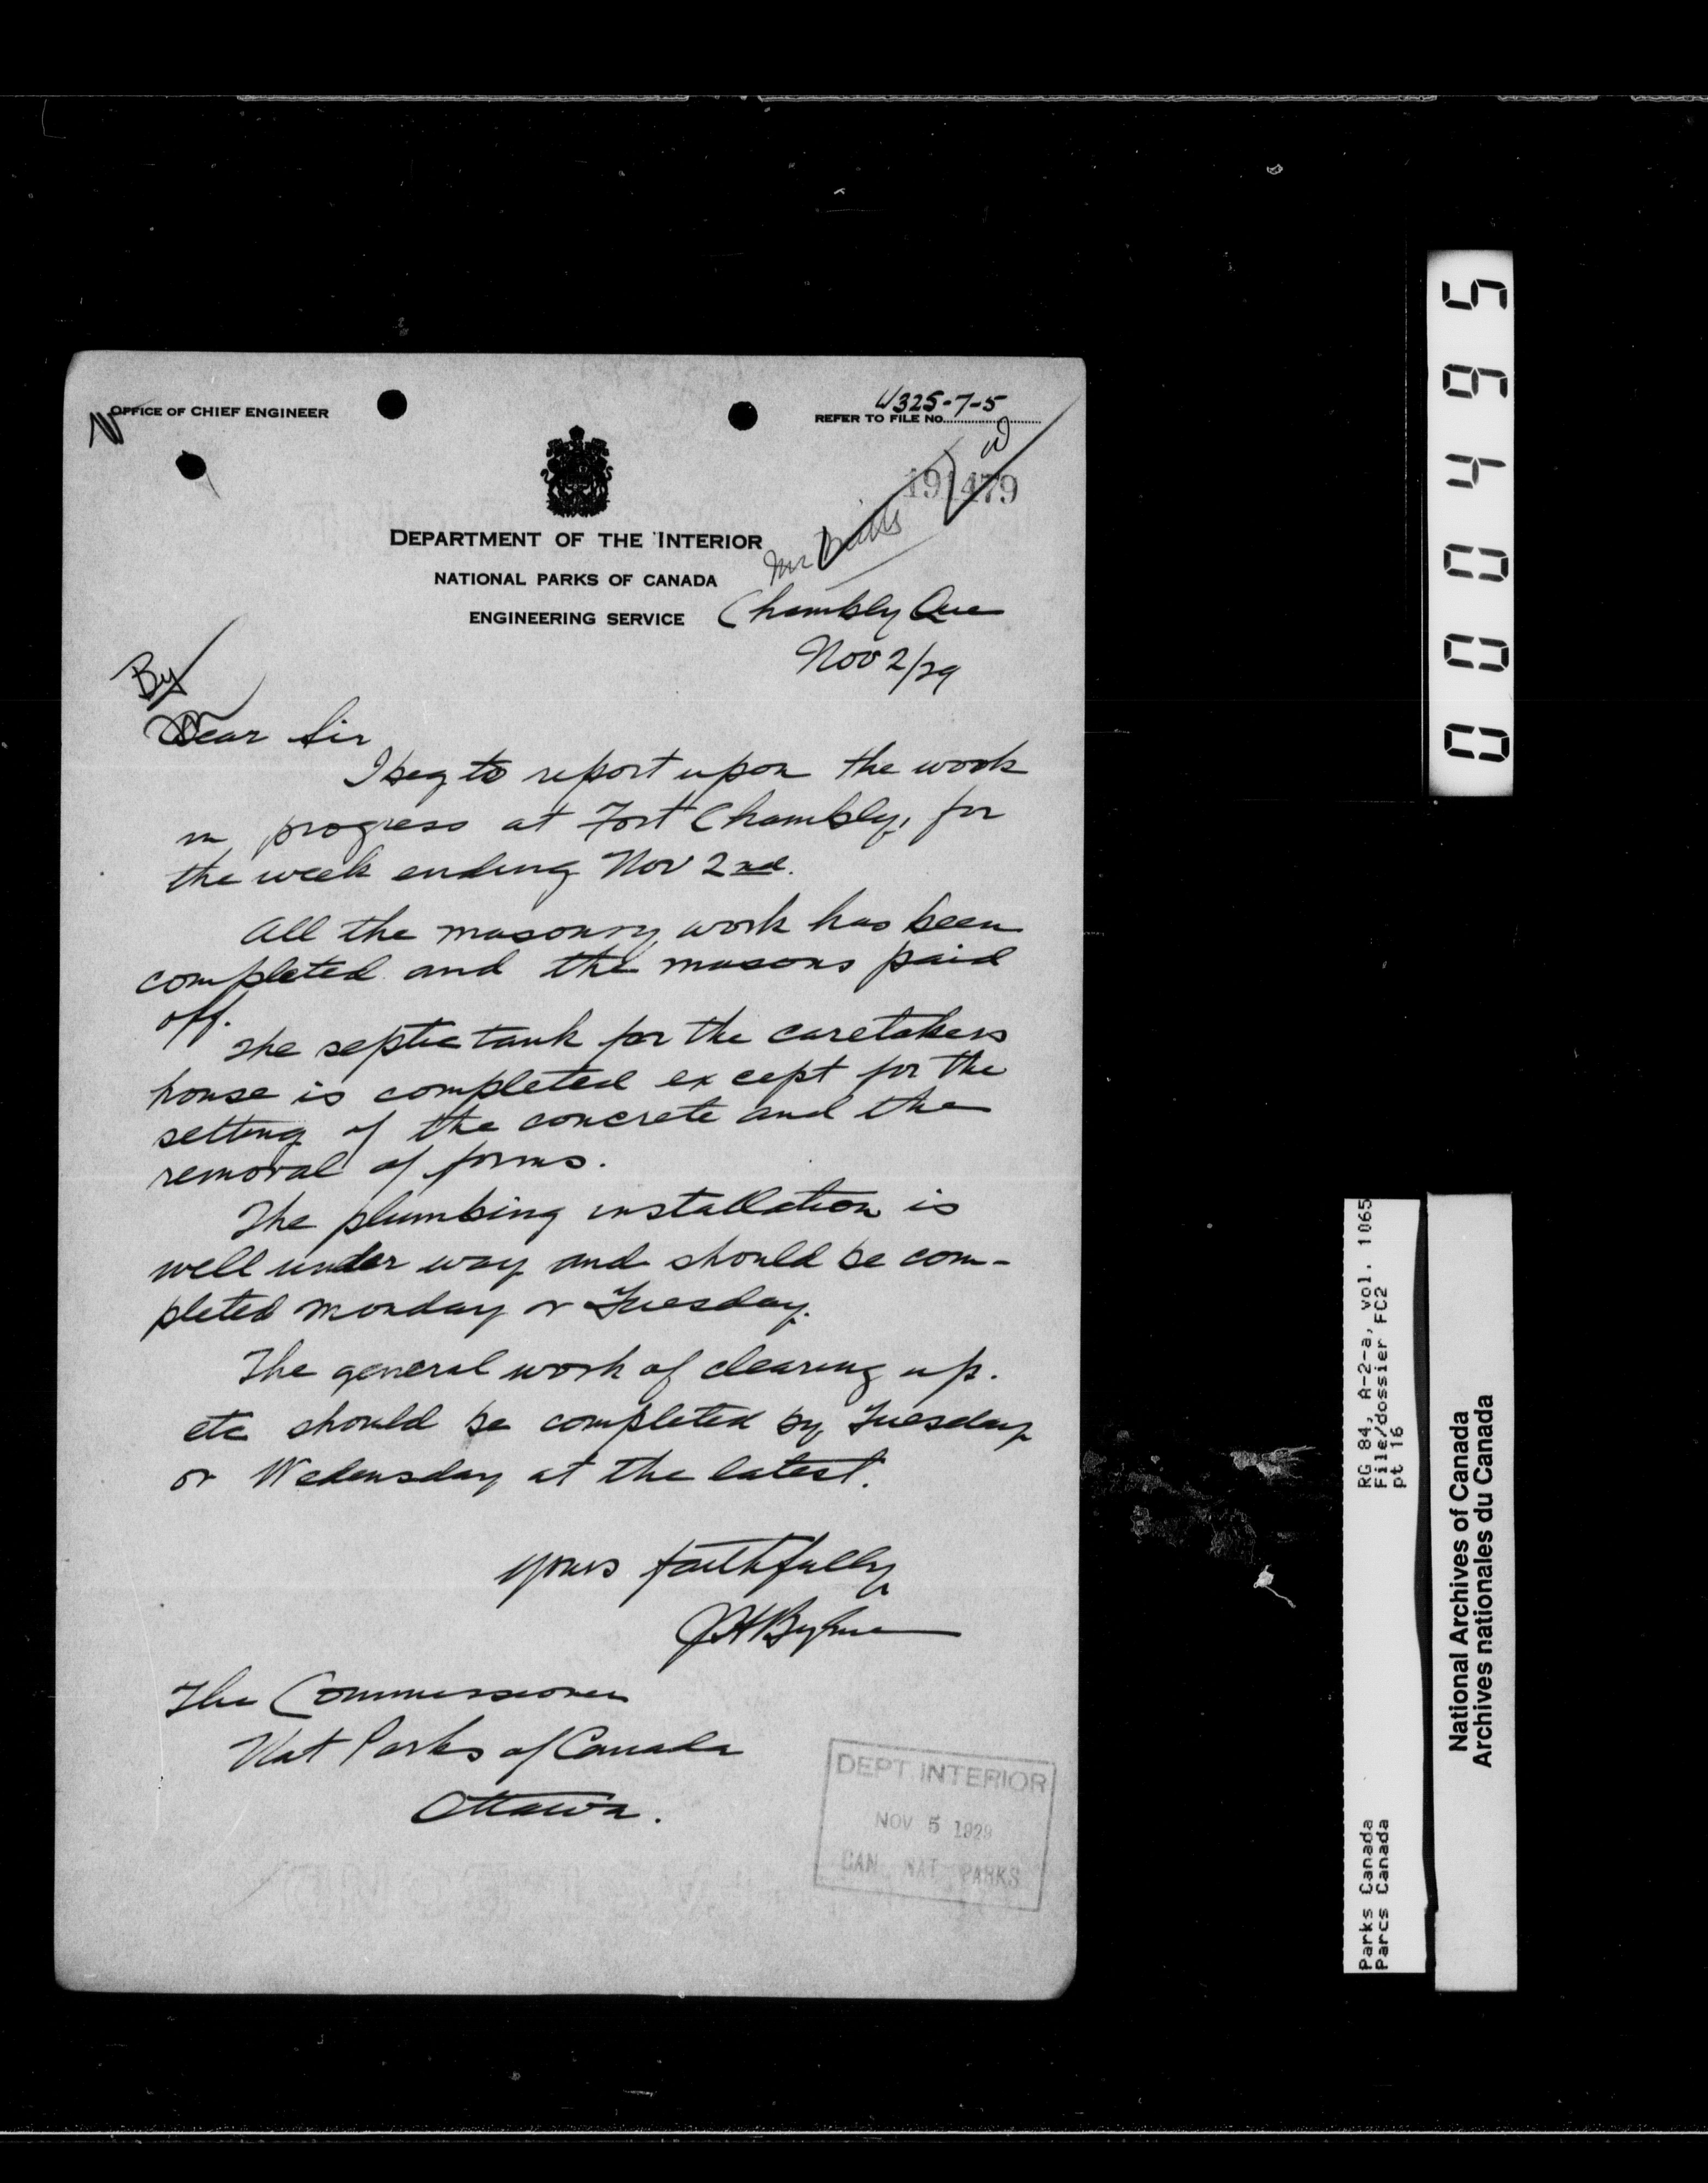 OFFICE OF CHIEF ENGINEER
W325-7-5
REFER TO FILE No.
191479
DEPARTMENT OF THE INTERIOR
NATIONAL PARKS OF CANADA
ENGINEERING SERVICE
Mr
Chambly Que
Nov 2/29
By
Dear Sir
I beg to report upon the work
in progress at Fort Chambly, for
the week ending Nov 2nd.
All the masonry work has been
completed and the masons paid
off.
The septic tank for the caretakers
house is completed except for the
setting of the concrete and the
removal of forms.
The plumbing installation is
well under way and should be com-
pleted Monday or Tuesday.
The general work of clearing up.
etc should be completed by Tuesday
or Wedensday at the latest.
Yours faithfully
The Commissioner
Nat Parks of Canada
Ottawa.
DEPT. INTERIOR
NOV 5 1929
CAN. NAT. PARKS
000495
RG 84, A-2-a, vol. 1065
File/dossier FC2
pt 16
Parks Canada
Parcs Canada
National Archives of Canada
Archives nationales du Canada